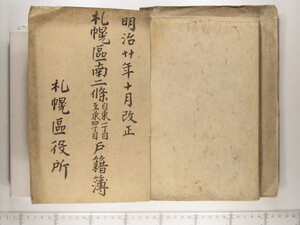 明治廿年十月改正
札幌區南二條自東一丁目至東四丁目戸籍簿
札幌區役所